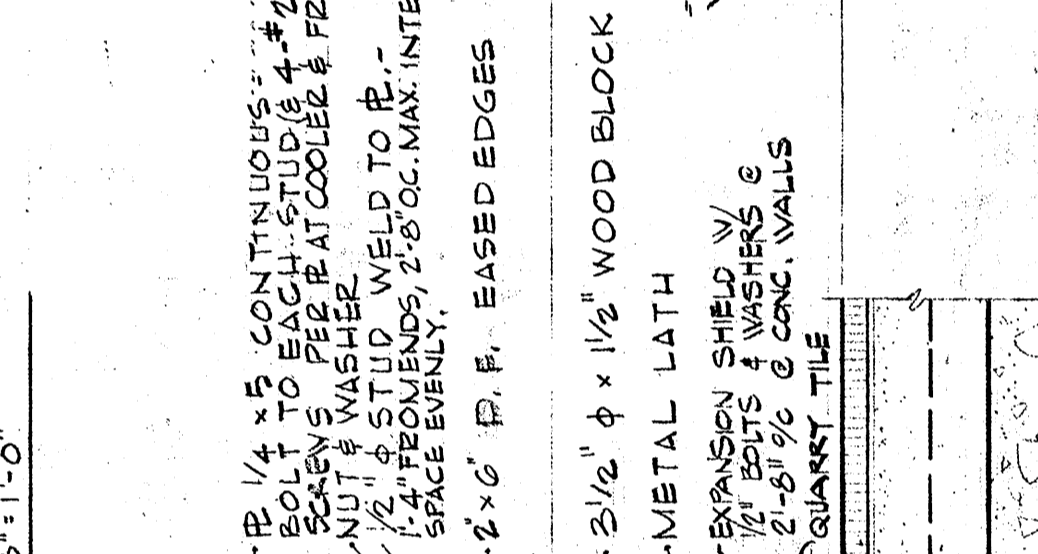 "=1'-0"
℄ 1/4 x 5 CONTINUOUS
BOLT TO EACH STUD (& 4-#
SCREWS PER ℄ AT COOLER & FR
NUT & WASHER
1/2" φ STUD WELD TO ℄.
1'-4" FROM ENDS, 2'-8" O.C. MAX. INTE
SPACE EVENLY.
2" x 6" D.F. EASED EDGES
3 1/2" φ x 1 1/2" WOOD BLOCK
METAL LATH
EXPANSION SHIELD W/
1/2" BOLTS & WASHERS @
2'-8" o/c @ CONC. WALLS
QUARRY TILE